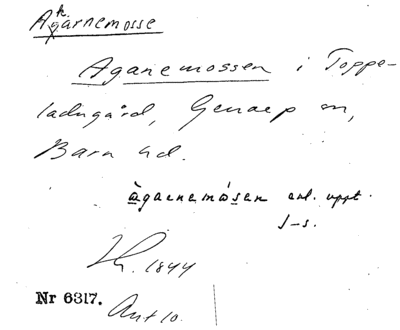 Agarnemosse
k.
Aganemossen i Toppe-
ladugård, Genarp sn,
Bara hd.
àgaenemåsen enl. uppt.
J-s.
1844
Nr 6317.
Ant 10.